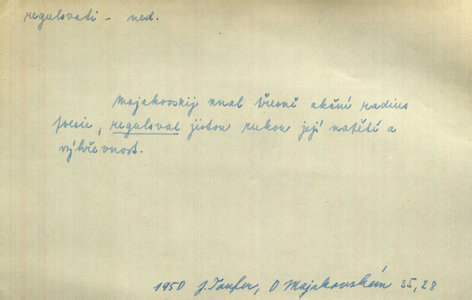 regulovati - ned.
Majakovskij znal přesně akční radius
poesie, reguloval jistou rukou její napětí a
výhřevnost.
1950 J. Taufer, O Majakovském 35, 28